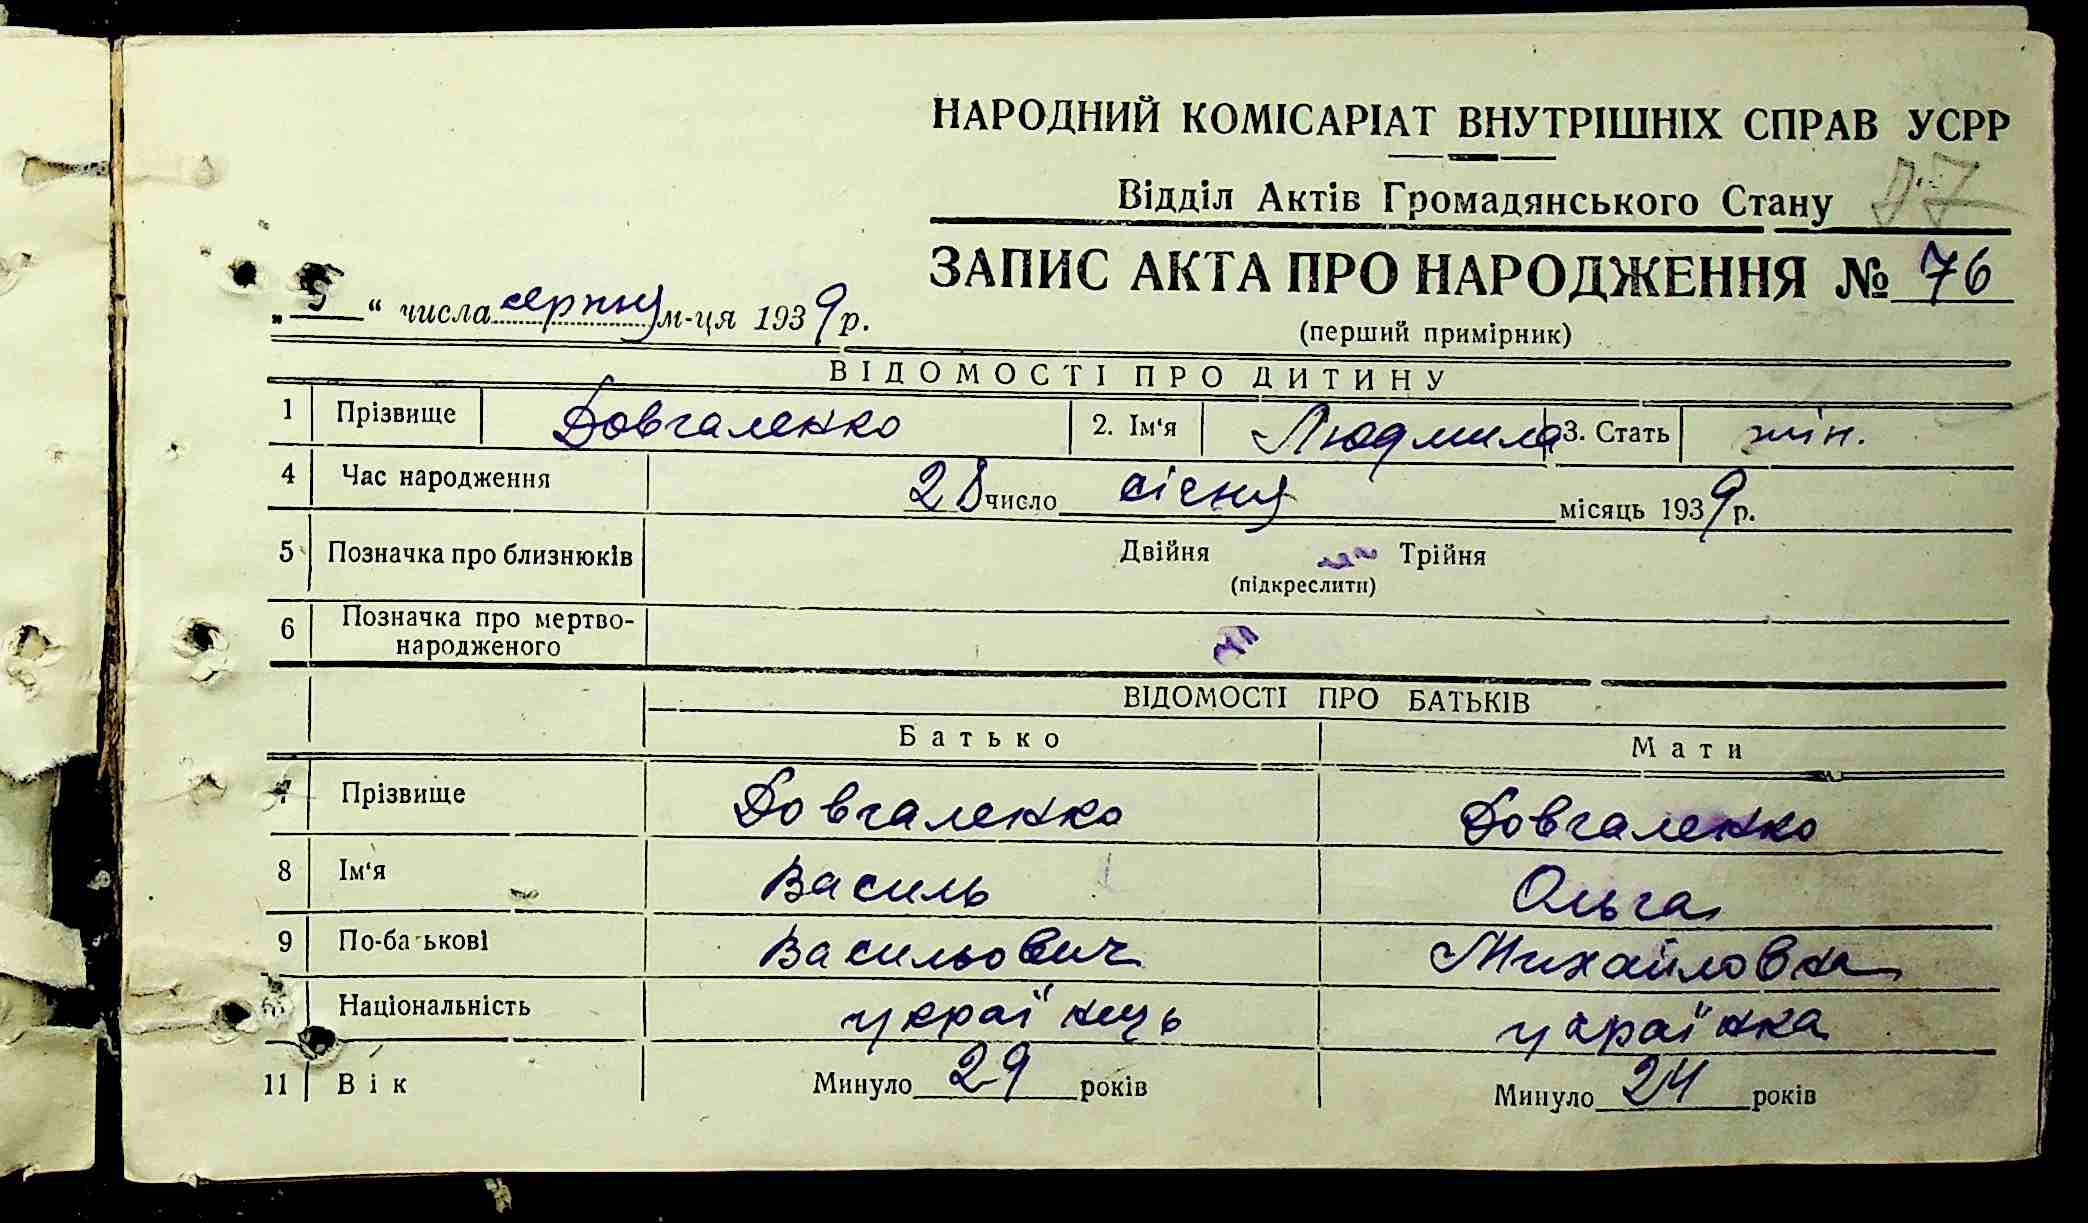 НАРОДНИЙ КОМІСАРІАТ ВНУТРІШНІХ СПРАВ УСРР
Відділ Актів Громадянського Стану
ЗАПИС АКТА ПРО НАРОДЖЕННЯ № 76
„ 5 “ числа серпня м-ця 1939 р.
(перший примірник)
ВІДОМОСТІ ПРО ДИТИНУ
1 Прізвище Довгаленко 2. Ім'я Людмила 3. Стать жін.
4 Час народження 28 число січня місяць 1939 р.
5 Позначка про близнюків Двійня Трійня
(підкреслити)
6 Позначка про мертво-
народженого
ВІДОМОСТІ ПРО БАТЬКІВ
Батько Мати
7 Прізвище Довгаленко Довгаленко
8 Ім'я Василь Ольга
9 По-батькові Васильович Михайловна
Національність українець українка
11 Вік Минуло 29 років Минуло 24 років